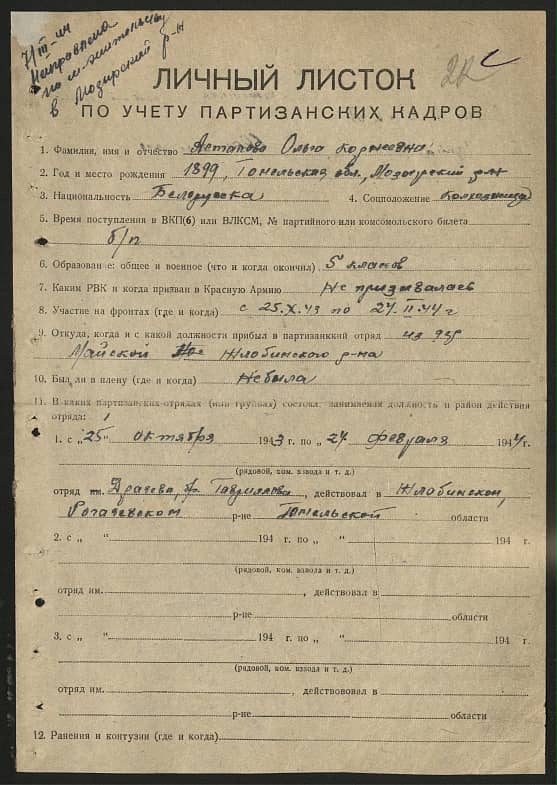 7/III-44
Направлена
по м-жительству
в Мозырский р-н
ЛИЧНЫЙ ЛИСТОК
ПО УЧЕТУ ПАРТИЗАНСКИХ КАДРОВ
1. Фамилия, имя и отчество Астапова Ольга
2. Год и место рождения 1899, Гомельская обл., Мозырский р-н
3. Национальность Белоруска 4. Соцположение колхозница
5. Время поступления в ВКП(б) или ВЛКСМ, № партийного или комсомольского билета
б/п
6. Образование: общее и военное (что и когда окончил) 5 класов
7. Каким РВК и когда призван в Красную Армию Не призывалась
8. Участие на фронтах (где и когда) с 25.X.43 по 24.II.44 г
9. Откуда, когда и с какой должности прибыл в партизанкий отряд из дер
Майской Жлобинского р-на
10. Был ли в плену (где и когда) Не была
11. В каких партизанских отрядах (или группах) состоял, занимаемая должность и район действия
отряда:
1. с „25" октября 1943 г. по „24" февраля 1944 г.
(рядовой, ком. взвода и т. д.)
отряд им. Драчева, бр. Гаврилова, действовал в Жлобинском,
Рогачевском р-не Гомельской области
2. с „ " 194 г. по „ " 194 г.
(рядовой, ком. взвода и т. д.)
отряд им. , действовал в
р-не области
3. с „ " 194 г. по „ " 194 г.
(рядовой, ком. взвода и т. д.)
отряд им. , действововал в
р-не области
12. Ранения и контузии (где и когда)